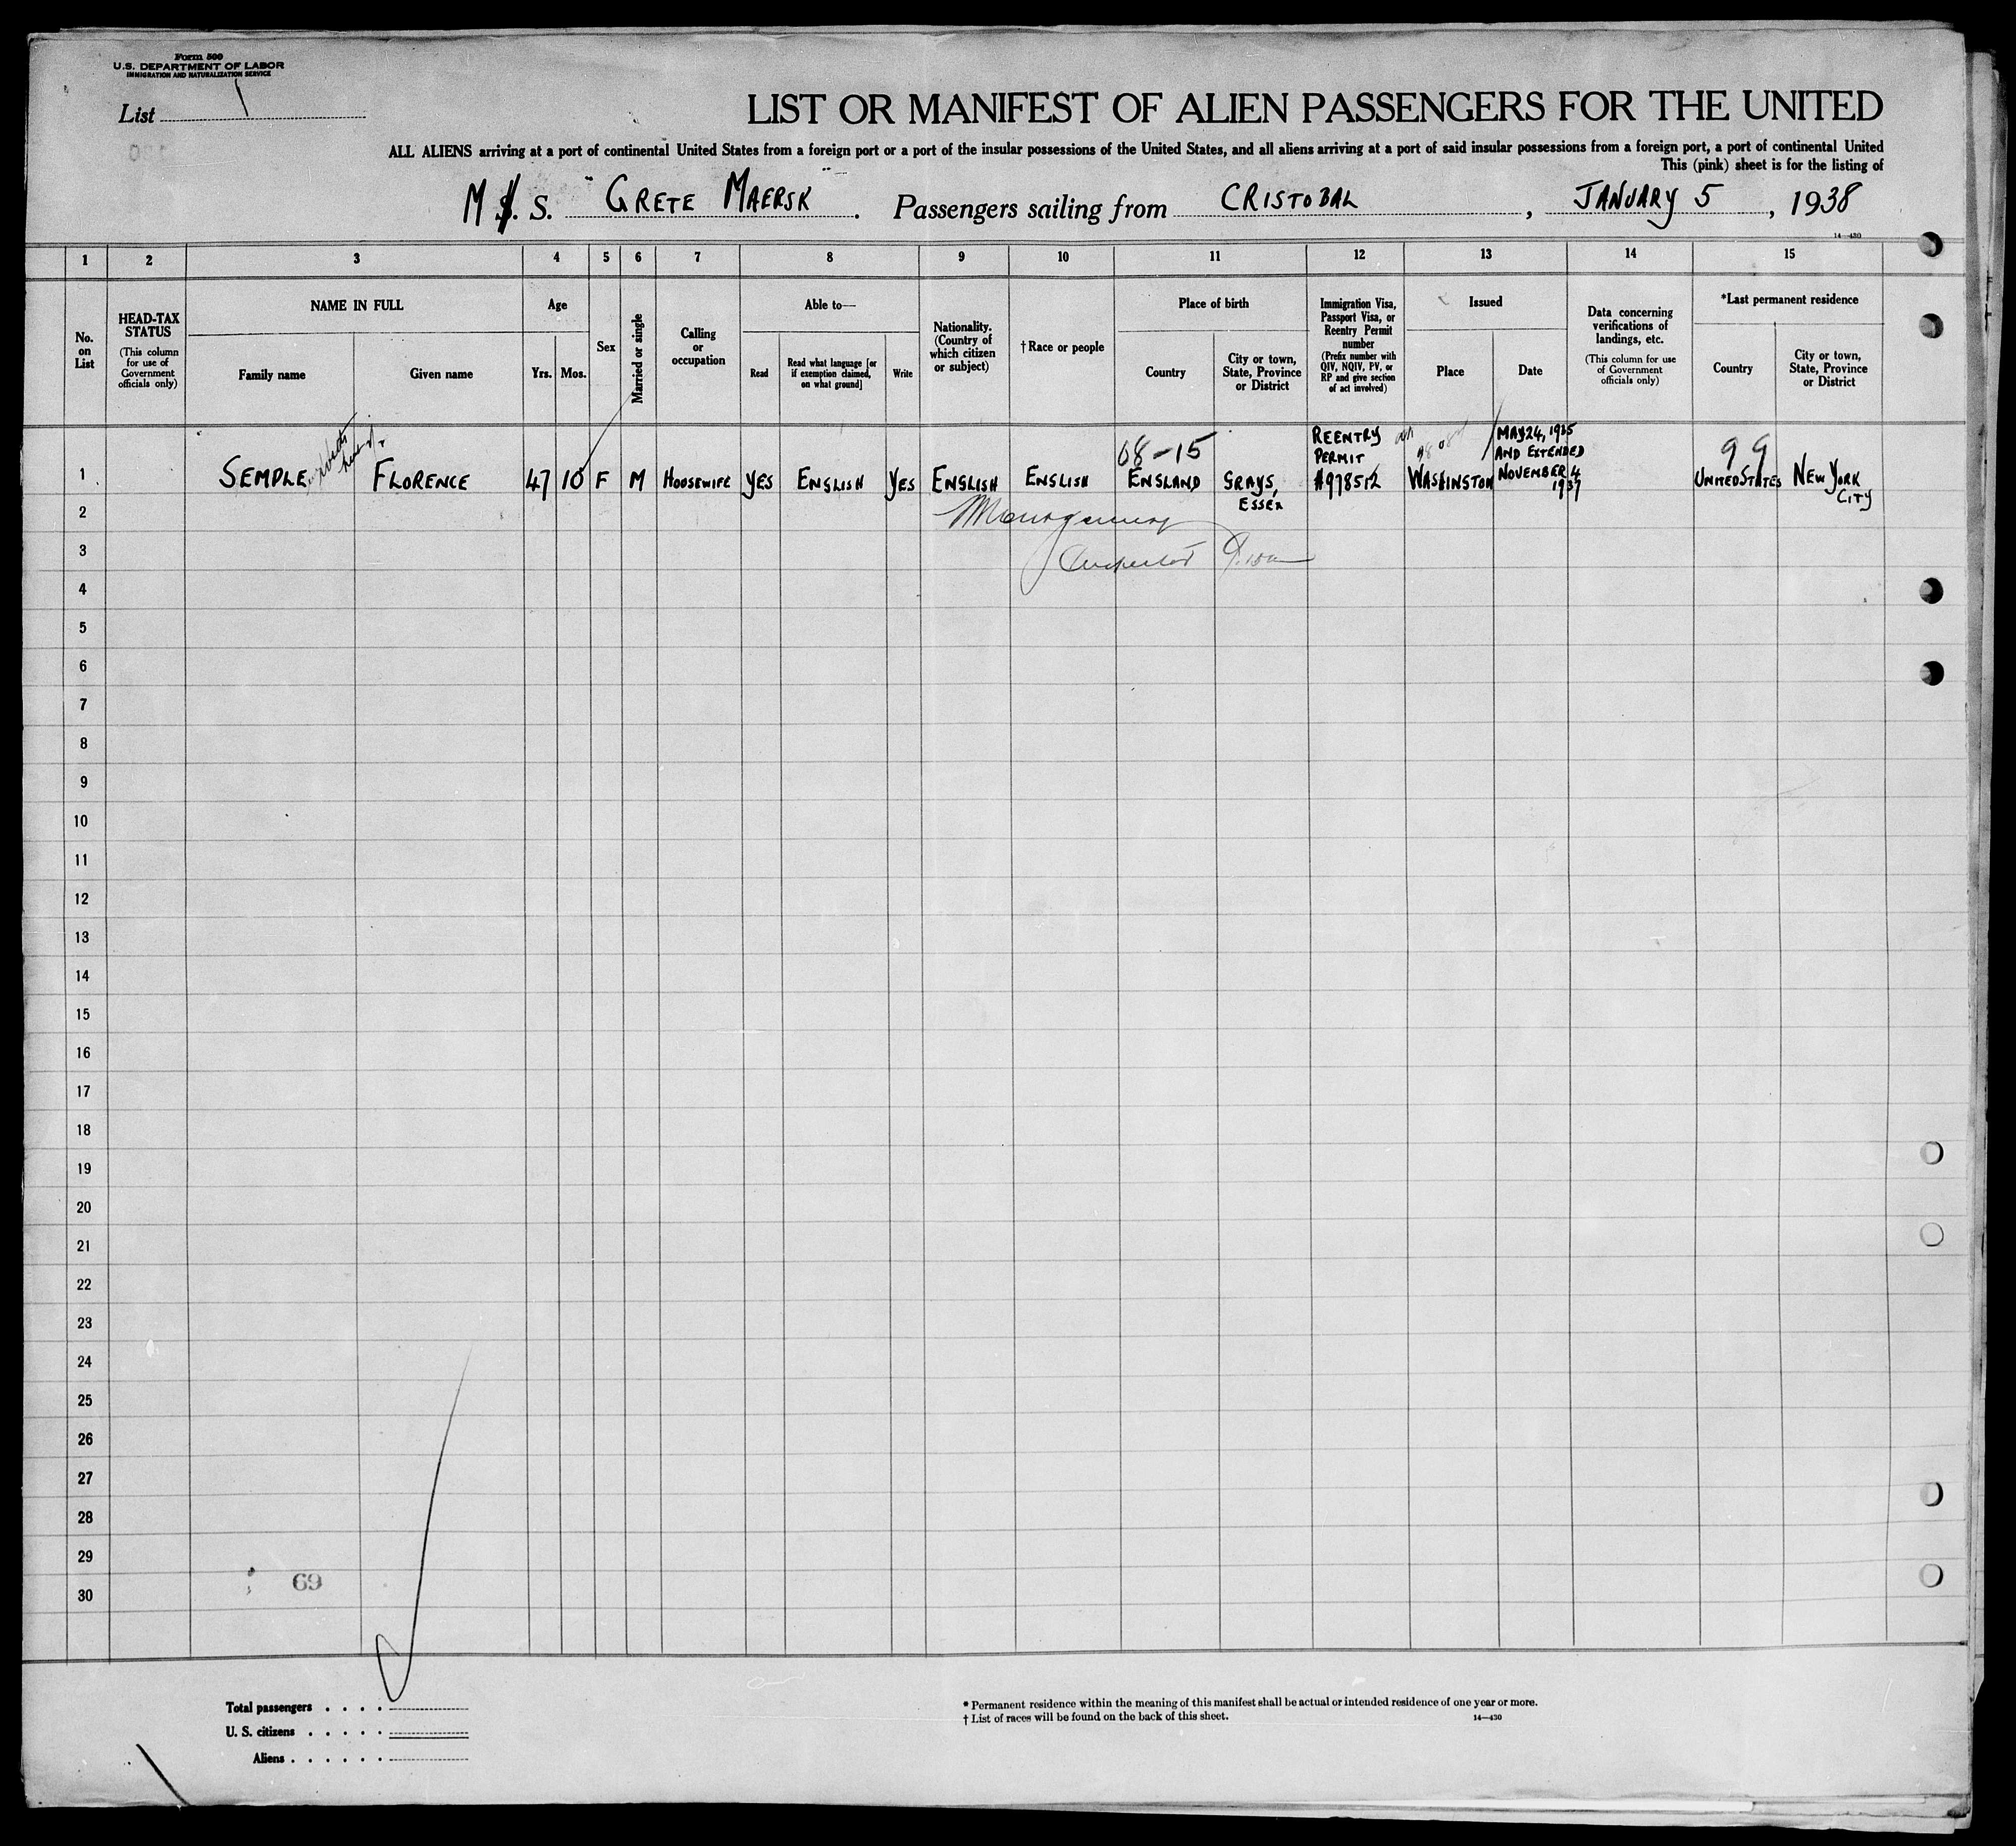 Form 500
U.S. DEPARTMENT OF LABOR
IMMIGRATION AND NATURALIZATION SERVICE
List 1
LIST OR MANIFEST OF ALIEN PASSENGERS FOR THE UNITED
ALL ALIENS arriving at a port of continental United States from a foreign port or a port of the insular possessions of the United States, and all aliens arriving at a port of said insular possessions from a foreign port, a port of continental United
This (pink) sheet is for the listing of
M S. S. "GRETE MAERSK". Passengers sailing from CRISTOBAL, JANUARY 5, 1938
14—430
1 2 3 4 5 6 7 8 9 10 11 12 13 14 15
No. on List
HEAD-TAX STATUS
(This column for use of Government officials only)
NAME IN FULL
Family name
Given name
Age
Yrs.
Mos.
Sex
Married or single
Calling or occupation
Able to—
Read
Read what language [or if exemption claimed, on what ground]
Write
Nationality. (Country of which citizen or subject)
† Race or people
Place of birth
Country
City or town, State, Province or District
Immigration Visa, Passport Visa, or Reentry Permit number
(Prefix number with QIV, NQIV, PV, or RP and give section of act involved)
Issued
Place
Date
Data concerning verifications of landings, etc.
(This column for use of Government officials only)
*Last permanent residence
Country
City or town, State, Province or District
1 SEMPLE FLORENCE 47 10 F M HOUSEWIFE YES ENGLISH YES ENGLISH ENGLISH 08-15 ENGLAND GRAYS, ESSEX REENTRY PERMIT #978512 WASHINGTON MAY 24, 1935 AND EXTENDED NOVEMBER 4 1937 99 UNITED STATES NEW YORK CITY
2 Montgomery
3 Inspector
4
5
6
7
8
9
10
11
12
13
14
15
16
17
18
19
20
21
22
23
24
25
26
27
28
29
30
69
Total passengers . . . .
U. S. citizens . . . . .
Aliens . . . . . .
* Permanent residence within the meaning of this manifest shall be actual or intended residence of one year or more.
† List of races will be found on the back of this sheet.
14—430